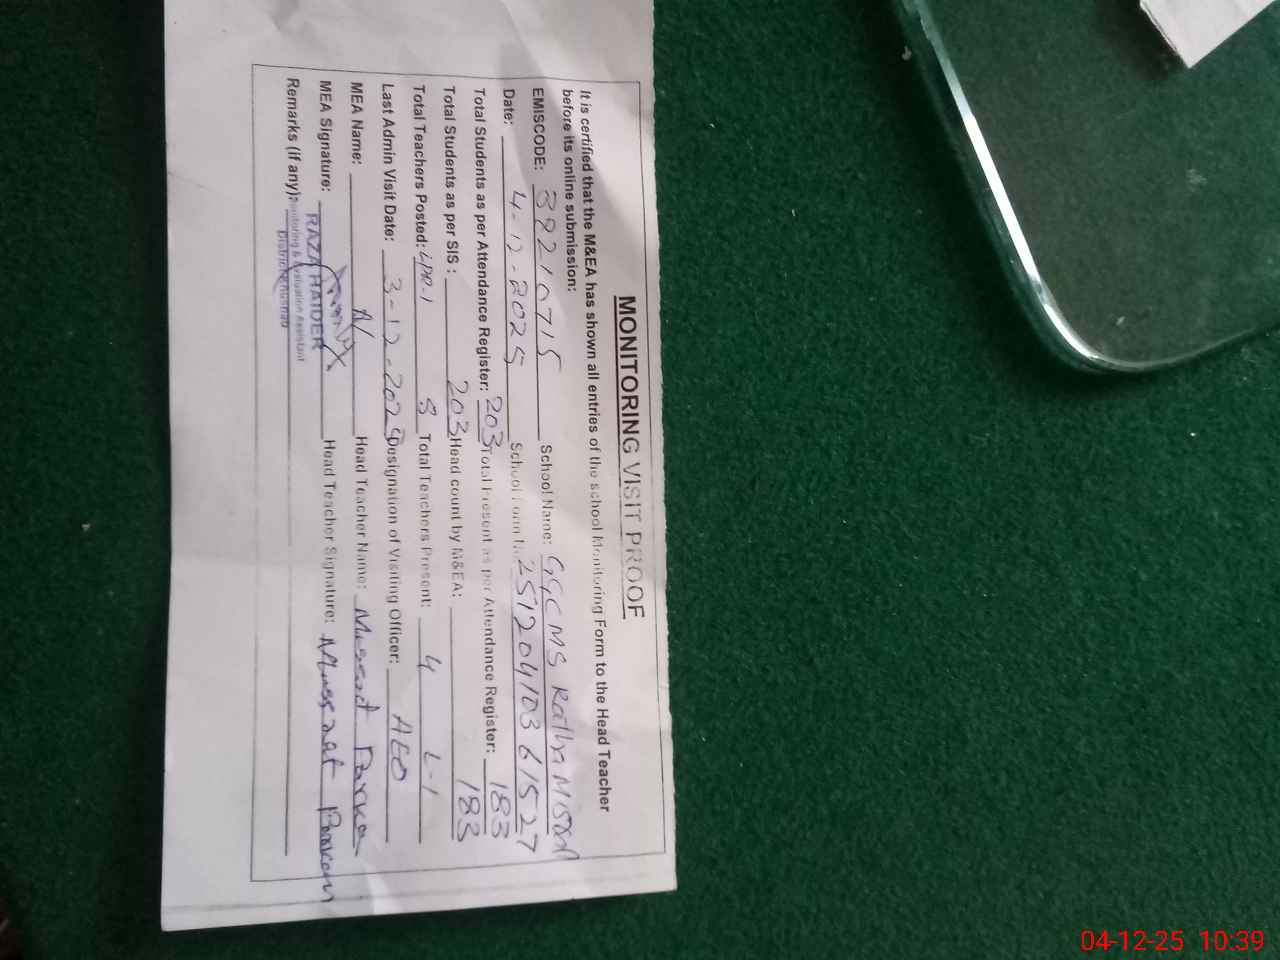 MONITORING VISIT PROOF
It is certified that the M&EA has shown all entries of the school Monitoring Form to the Head Teacher
before its online submission:
EMISCODE: 39210715 School Name: GGCMS
Date: 4-12-2025 School Form No. 25120410361527
Total Students as per Attendance Register: 203 Total Present as per Attendance Register: 183
Total Students as per SIS: 203 Head count by M&EA: 183
Total Teachers Posted: 8 Total Teachers Present: 4 L-1
Last Admin Visit Date: 3-12-2025 Designation of Visiting Officer: AEO
MEA Name: Head Teacher Name: Musarat
MEA Signature: Head Teacher Signature: Mussarat
RAZA HAIDER
Remarks (if any): Monitoring & Evaluation Assistant
District Khushab
04-12-25 10:39